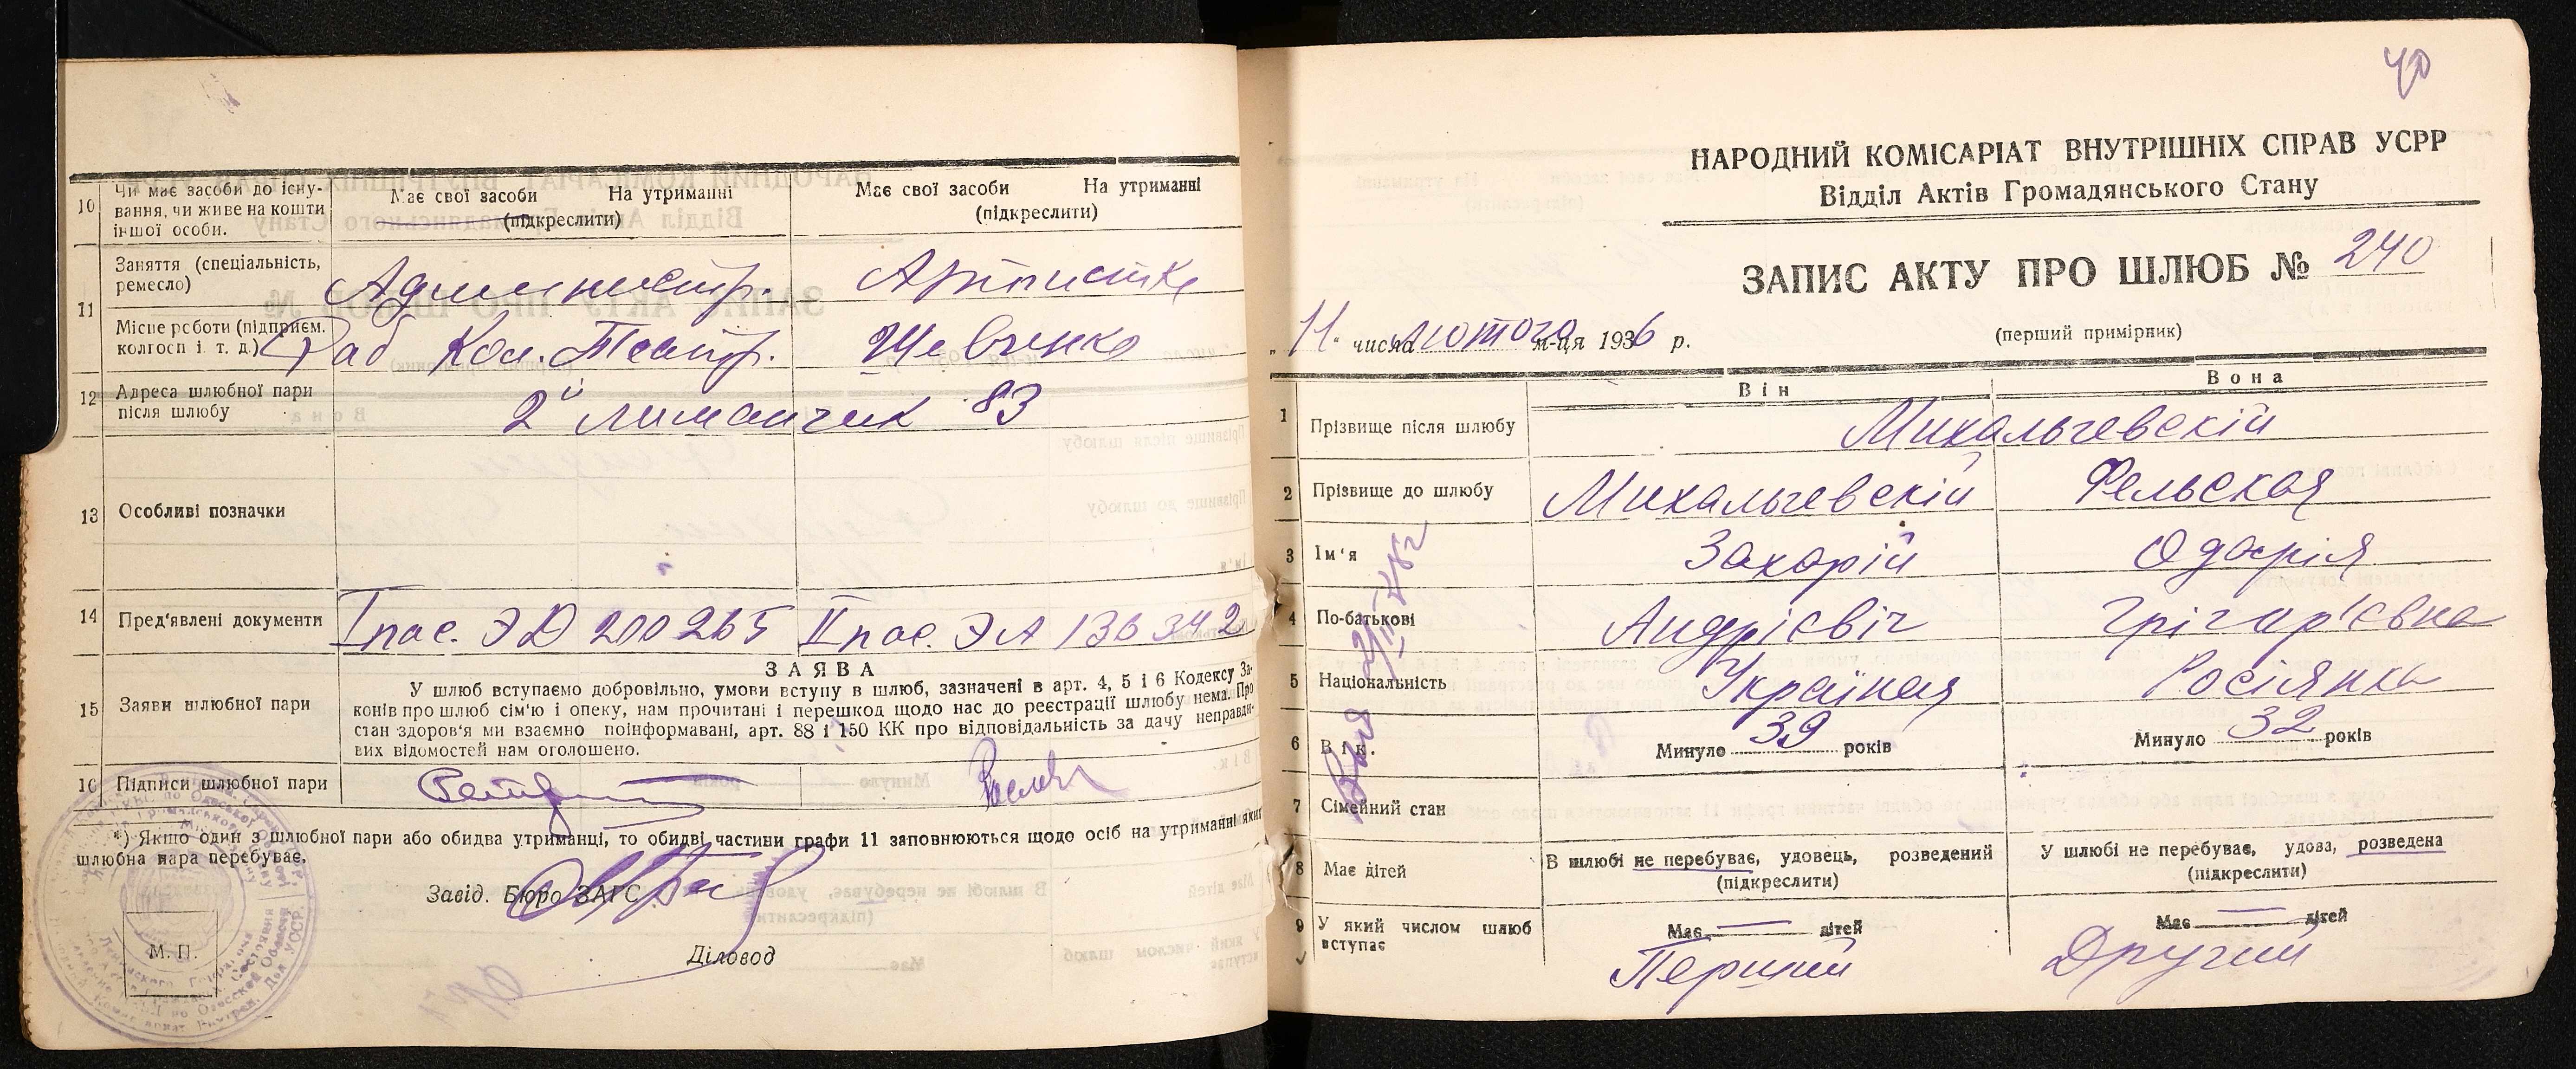 10 Чи має засоби до існу-
вання, чи живе на кошти
іншої особи.
Має свої засоби На утриманні
(підкреслити)
Має свої засоби На утриманні
(підкреслити)
11 Заняття (спеціальність,
ремесло)
Администр. Артистка
Місце роботи (підприєм.
колгосп і т. д.)
Раб Кол. Театр. Шевченко
12 Адреса шлюбної пари
після шлюбу
83
13 Особливі позначки
14 Пред'явлені документи
I пас. ЭД 200265 II пас. ЭА 136342
ЗАЯВА
15 Заяви шлюбної пари
У шлюб вступаємо добровільно, умови вступу в шлюб, зазначені в арт. 4, 5 і 6 Кодексу За-
конів про шлюб сім'ю і опеку, нам прочитані і перешкод щодо нас до реєстрації шлюбу нема. Про
стан здоров'я ми взаємно поінформавані, арт. 88 і 150 КК про відповідальність за дачу неправди-
вих відомостей нам оголошено.
16 Підписи шлюбної пари
*) Якщо один з шлюбної пари або обидва утриманці, то обидві частини графи 11 заповнюються щодо осіб на утриманні яких
шлюбна пара перебуває.
Завід. Бюро ЗАГС
М. П.
Діловод
40
НАРОДНИЙ КОМІСАРІАТ ВНУТРІШНІХ СПРАВ УСРР
Відділ Актів Громадянського Стану
ЗАПИС АКТУ ПРО ШЛЮБ № 240
„11“ числа лютого м-ця 1936 р.
(перший примірник)
Він Вона
1 Прізвище після шлюбу Михальчевскій
2 Прізвище до шлюбу Михальчевскій Фельская
3 Ім'я Захарій Одарія
4 По-батькові Андрієвіч Грігор'євна
5 Національність Україная Росіянка
6 Вік. Минуло 39 років Минуло 32 років
7 Сімейний стан
В шлюбі не перебуває, удовець, розведений
(підкреслити)
У шлюбі не перебуває, удова, розведена
(підкреслити)
8 Має дітей
Має — дітей Має — дітей
9 У який числом шлюб
вступає
Перший Другий